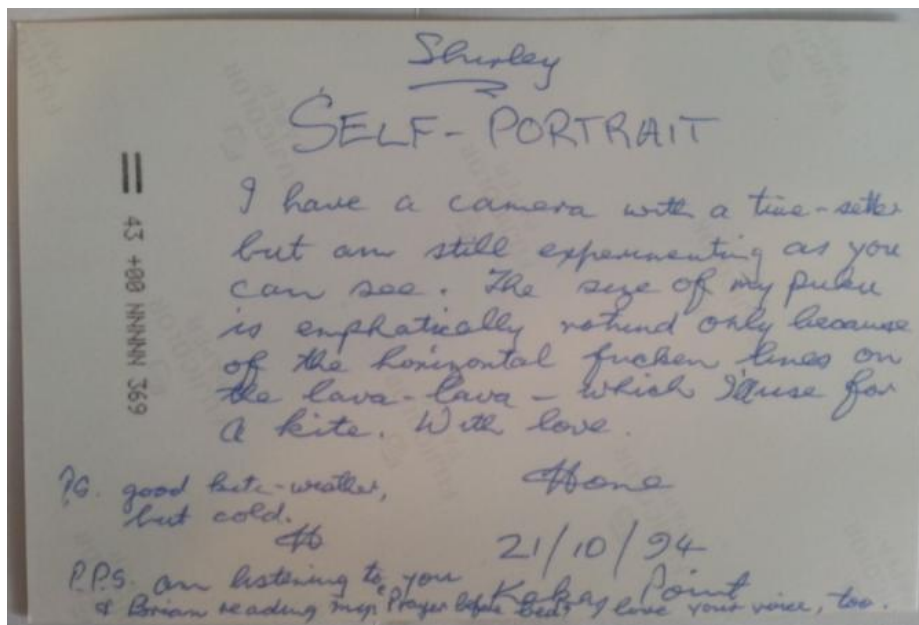 Shirley
SELF-PORTRAIT
I have a camera with a time-setter
but am still experimenting as you
can see. The size of my puku
is emphatically rotund only because
of the horizontal fucken lines on
the lava-lava - which I use for
a kite. With love.
Hone
P.S. good kite-weather,
but cold.
H
21/10/94
Kaka Point
P.P.S. am listening to you
& Brian reading my Prayer before I love your voice, too.
43 +00 NNNNN 369